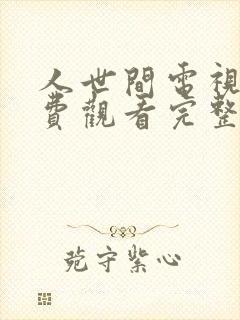 人世間電視
費觀看完整
苑守紫心